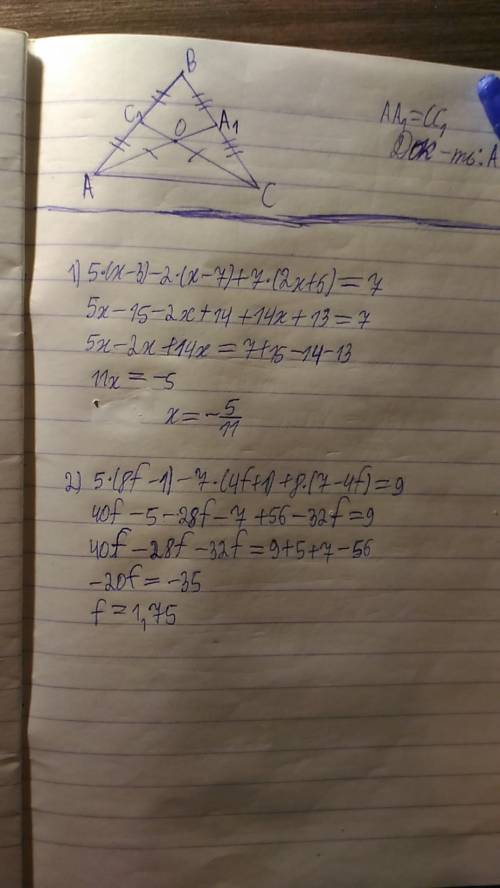 B
C₁ O A₁
A C
AA₁=CC₁
Док-ть: A
1) 5·(x-3)-2·(x-7)+7·(2x+6)=7
5x-15-2x+14+14x+13=7
5x-2x+14x=7+15-14-13
11x=-5
x=-5/11
2) 5·(8f-1)-7·(4f+1)+8·(7-4f)=9
40f-5-28f-7+56-32f=9
40f-28f-32f=9+5+7-56
-20f=-35
f=1,75